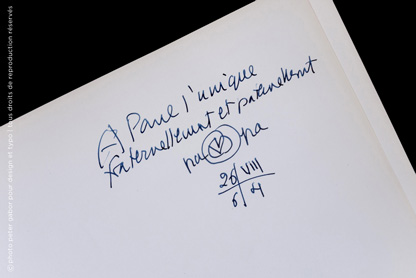 À Paul l'unique
fraternellement et paternellement
papa
26 VIII
6 4
©photo peter gabor pour design et typo | tous droits de reproduction réservés